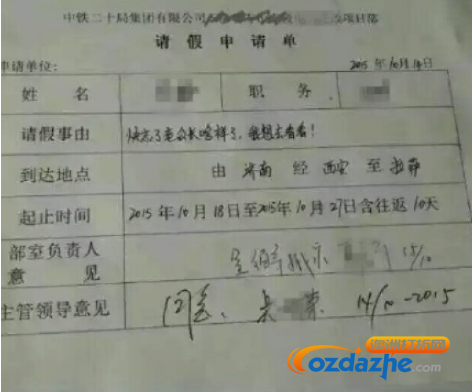 中铁二十局集团有限公司 项目部
请假申请单
申请单位： 2015年10月14日
姓名 职务
请假事由 快忘了老公长啥样了，我想去看看！
到达地点 由 济南 经 西安 至 拉萨
起止时间 2015年10月18日至2015年10月27日含往返10天
部室负责人 15/10
意见
主管领导意见 同意、 14/10-2015
澳洲打折网
ozdazhe.com